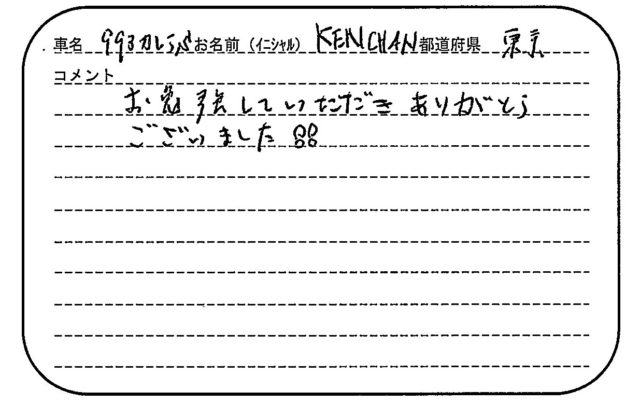 車名 993カレラS お名前（ｲﾆｼｬﾙ） KENCHAN 都道府県 東京
コメント
お勉強していただき ありがとう
ございました !!